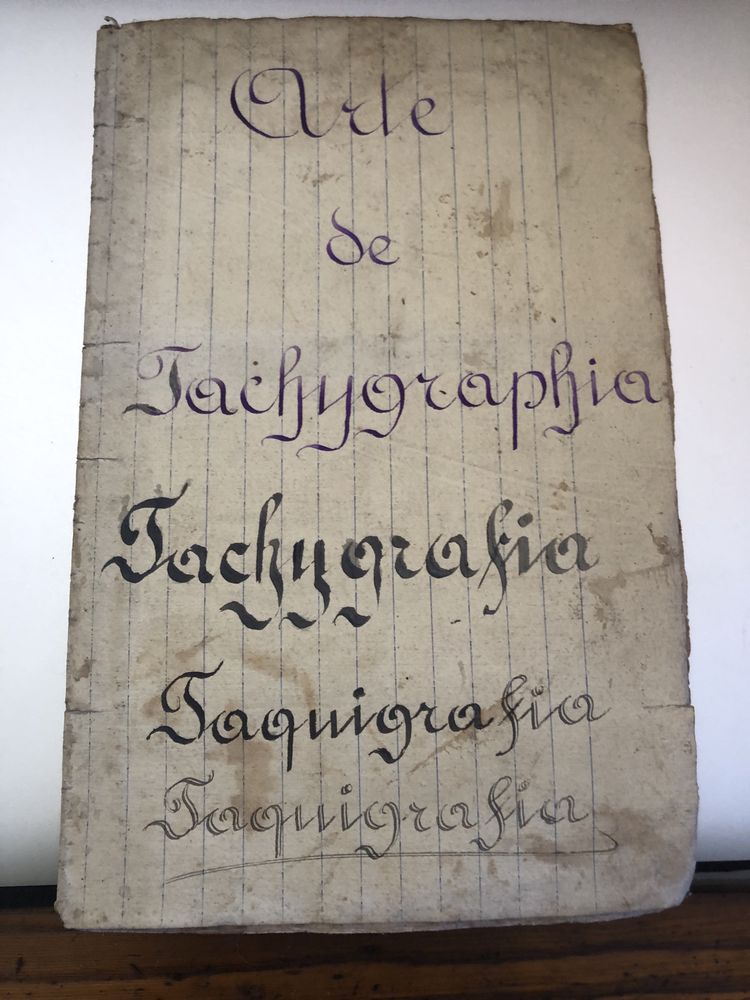 Arte
de
Tachygraphia
Tachygrafia
Taquigrafia
Taquigrafia